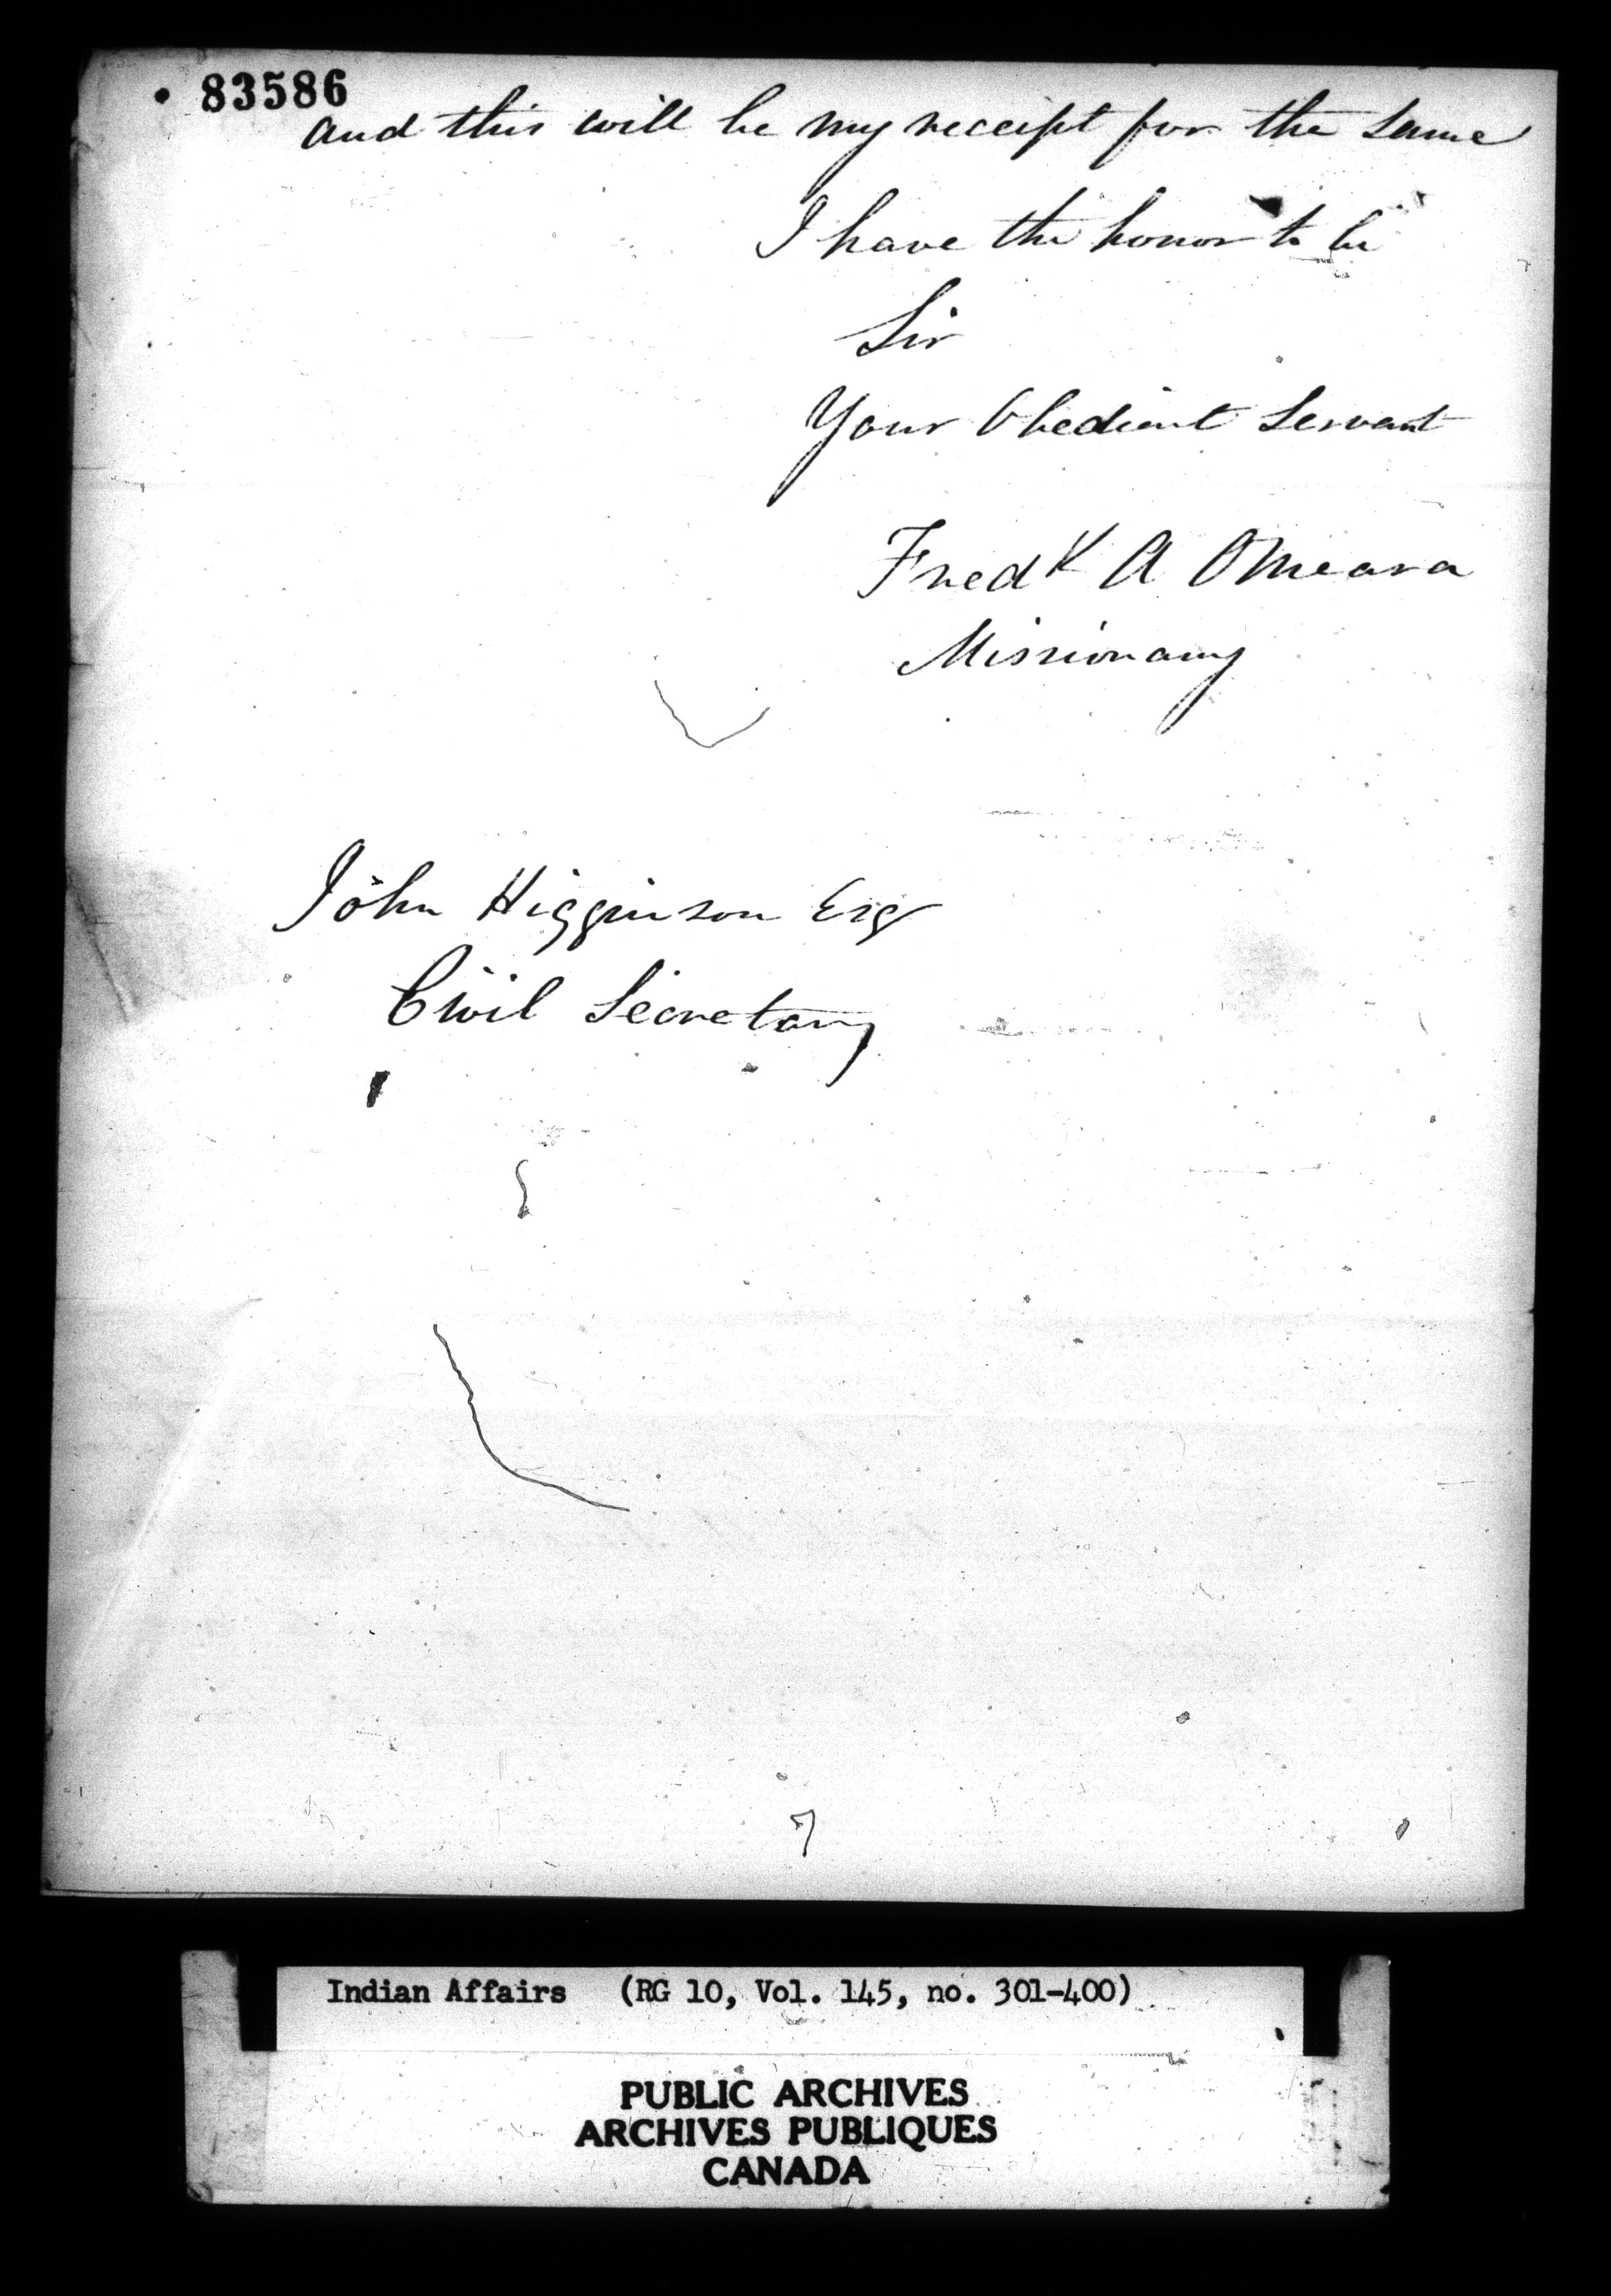 83586
and this will be my receipt for the same
I have the honor to be
Sir
Your Obedient Servant
Fredk A OMeara
Missionary
John Higginson Esq
Civil Secretary
Indian Affairs (RG 10, Vol. 145, no. 301-400)
PUBLIC ARCHIVES
ARCHIVES PUBLIQUES
CANADA